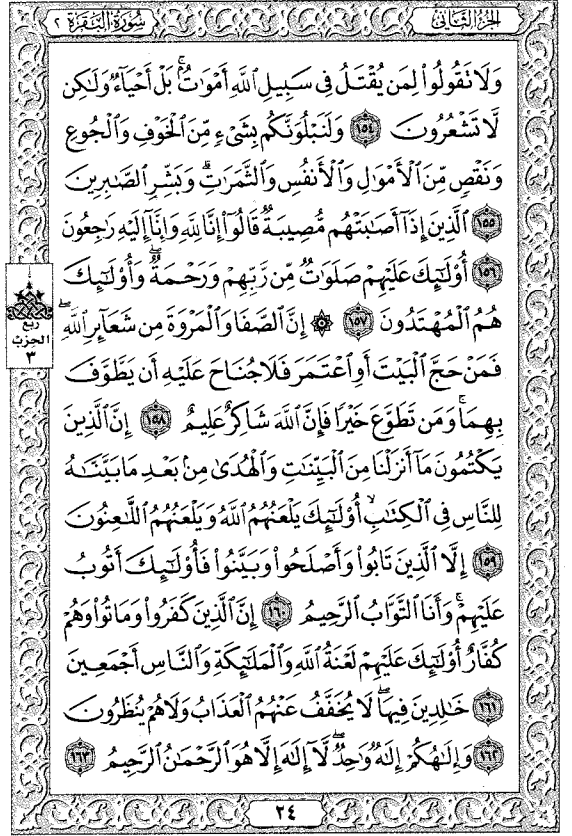 سُورَةُ البَقَرَةِ ٢
الجُزْءُ الثَّانِي
وَلَا تَقُولُوا۟ لِمَن يُقْتَلُ فِى سَبِيلِ ٱللَّهِ أَمْوَٰتٌۢ ۚ بَلْ أَحْيَآءٌ وَلَـٰكِن
لَّا تَشْعُرُونَ ١٥٤ وَلَنَبْلُوَنَّكُم بِشَىْءٍ مِّنَ ٱلْخَوْفِ وَٱلْجُوعِ
وَنَقْصٍ مِّنَ ٱلْأَمْوَٰلِ وَٱلْأَنفُسِ وَٱلثَّمَرَٰتِ ۗ وَبَشِّرِ ٱلصَّـٰبِرِينَ
١٥٥ ٱلَّذِينَ إِذَآ أَصَـٰبَتْهُم مُّصِيبَةٌ قَالُوٓا۟ إِنَّا لِلَّهِ وَإِنَّآ إِلَيْهِ رَٰجِعُونَ
١٥٦ أُو۟لَـٰٓئِكَ عَلَيْهِمْ صَلَوَٰتٌ مِّن رَّبِّهِمْ وَرَحْمَةٌ ۖ وَأُو۟لَـٰٓئِكَ
هُمُ ٱلْمُهْتَدُونَ ١٥٧ ۞ إِنَّ ٱلصَّفَا وَٱلْمَرْوَةَ مِن شَعَآئِرِ ٱللَّهِ ۖ
فَمَنْ حَجَّ ٱلْبَيْتَ أَوِ ٱعْتَمَرَ فَلَا جُنَاحَ عَلَيْهِ أَن يَطَّوَّفَ
بِهِمَا ۚ وَمَن تَطَوَّعَ خَيْرًا فَإِنَّ ٱللَّهَ شَاكِرٌ عَلِيمٌ ١٥٨ إِنَّ ٱلَّذِينَ
يَكْتُمُونَ مَآ أَنزَلْنَا مِنَ ٱلْبَيِّنَـٰتِ وَٱلْهُدَىٰ مِنۢ بَعْدِ مَا بَيَّنَّـٰهُ
لِلنَّاسِ فِى ٱلْكِتَـٰبِ ۙ أُو۟لَـٰٓئِكَ يَلْعَنُهُمُ ٱللَّهُ وَيَلْعَنُهُمُ ٱللَّـٰعِنُونَ
١٥٩ إِلَّا ٱلَّذِينَ تَابُوا۟ وَأَصْلَحُوا۟ وَبَيَّنُوا۟ فَأُو۟لَـٰٓئِكَ أَتُوبُ
عَلَيْهِمْ ۚ وَأَنَا ٱلتَّوَّابُ ٱلرَّحِيمُ ١٦٠ إِنَّ ٱلَّذِينَ كَفَرُوا۟ وَمَاتُوا۟ وَهُمْ
كُفَّارٌ أُو۟لَـٰٓئِكَ عَلَيْهِمْ لَعْنَةُ ٱللَّهِ وَٱلْمَلَـٰٓئِكَةِ وَٱلنَّاسِ أَجْمَعِينَ
١٦١ خَـٰلِدِينَ فِيهَا ۖ لَا يُخَفَّفُ عَنْهُمُ ٱلْعَذَابُ وَلَا هُمْ يُنظَرُونَ
١٦٢ وَإِلَـٰهُكُمْ إِلَـٰهٌ وَٰحِدٌ ۖ لَّآ إِلَـٰهَ إِلَّا هُوَ ٱلرَّحْمَـٰنُ ٱلرَّحِيمُ ١٦٣
ربع
الحزب
٣
٢٤